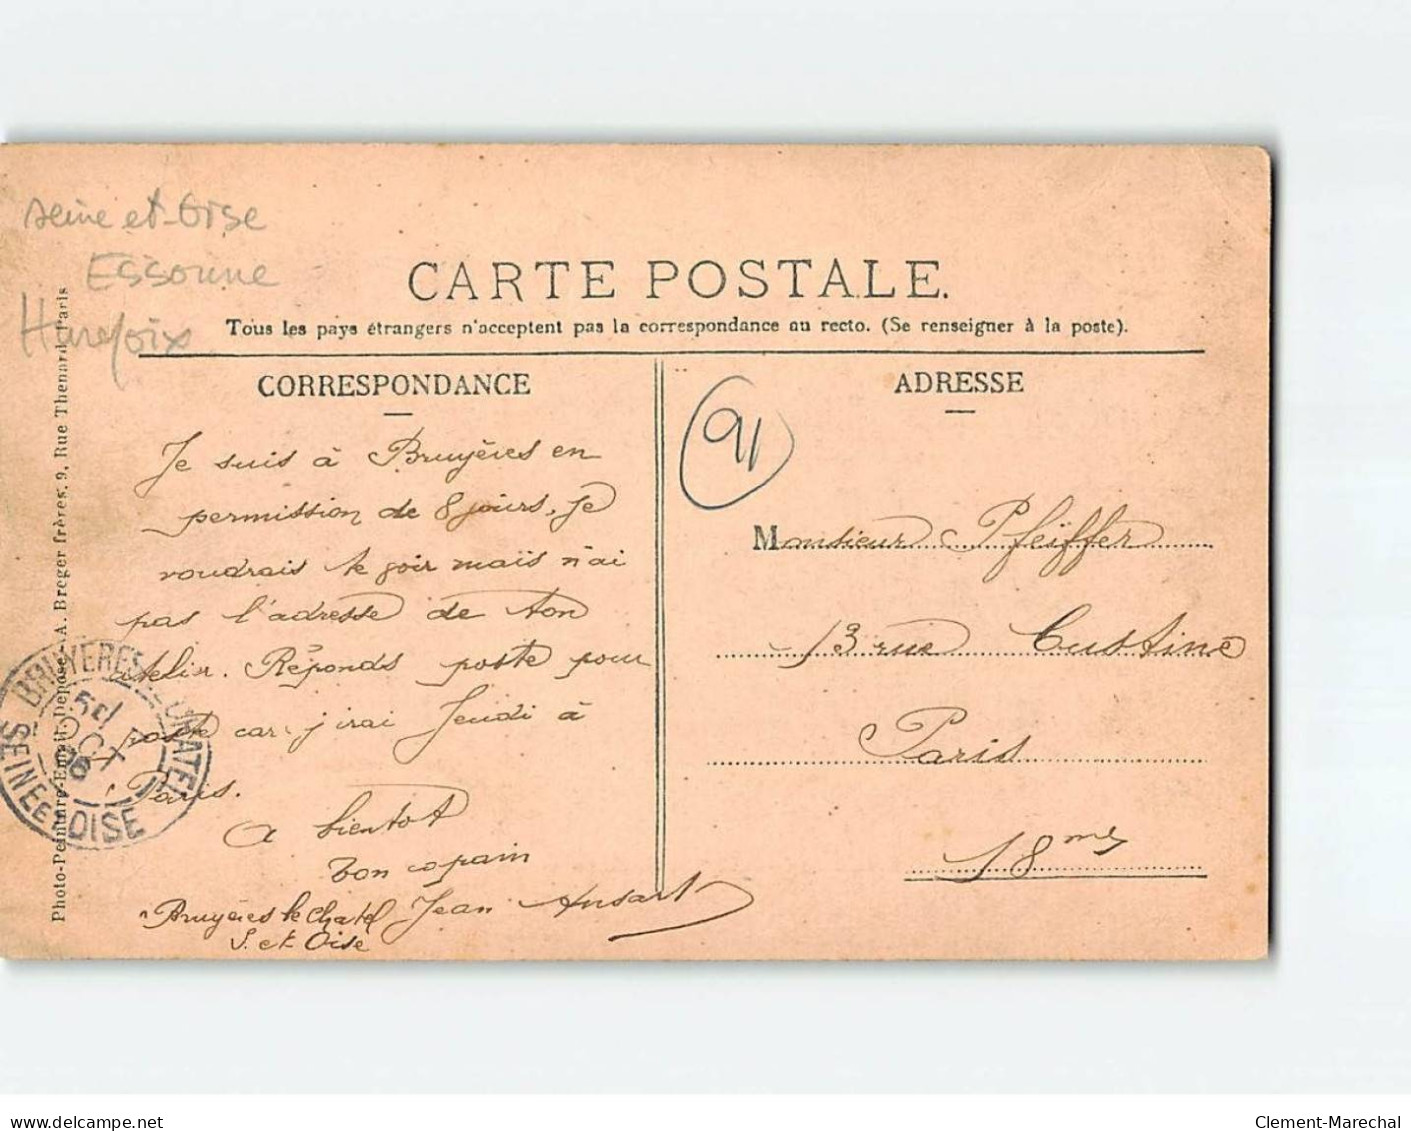 seine et Oise
Essonne
Hurepoix
CARTE POSTALE.
Tous les pays étrangers n'acceptent pas la correspondance au recto. (Se renseigner à la poste).
CORRESPONDANCE
Je suis à Bruyères en
permission de 8 jours, je
voudrais te voir maïs n'ai
pas l'adresse de ton
atelier. Réponds poste pour
poste car j'irai Jeudi à
Paris.
A bientot
Ton copain
Jean Ansart
Bruyères le Chatel
S. et Oise
ADRESSE
91
Monsieur Pfeiffer
13 rue Custine
Paris
18me
Photo-Peinture-Email. Déposé. A. Breger frères, 9, Rue Thenard Paris
BRUYERES-LE-CHATEL
5
OCT
06
SEINE ET OISE
Clement-Marechal